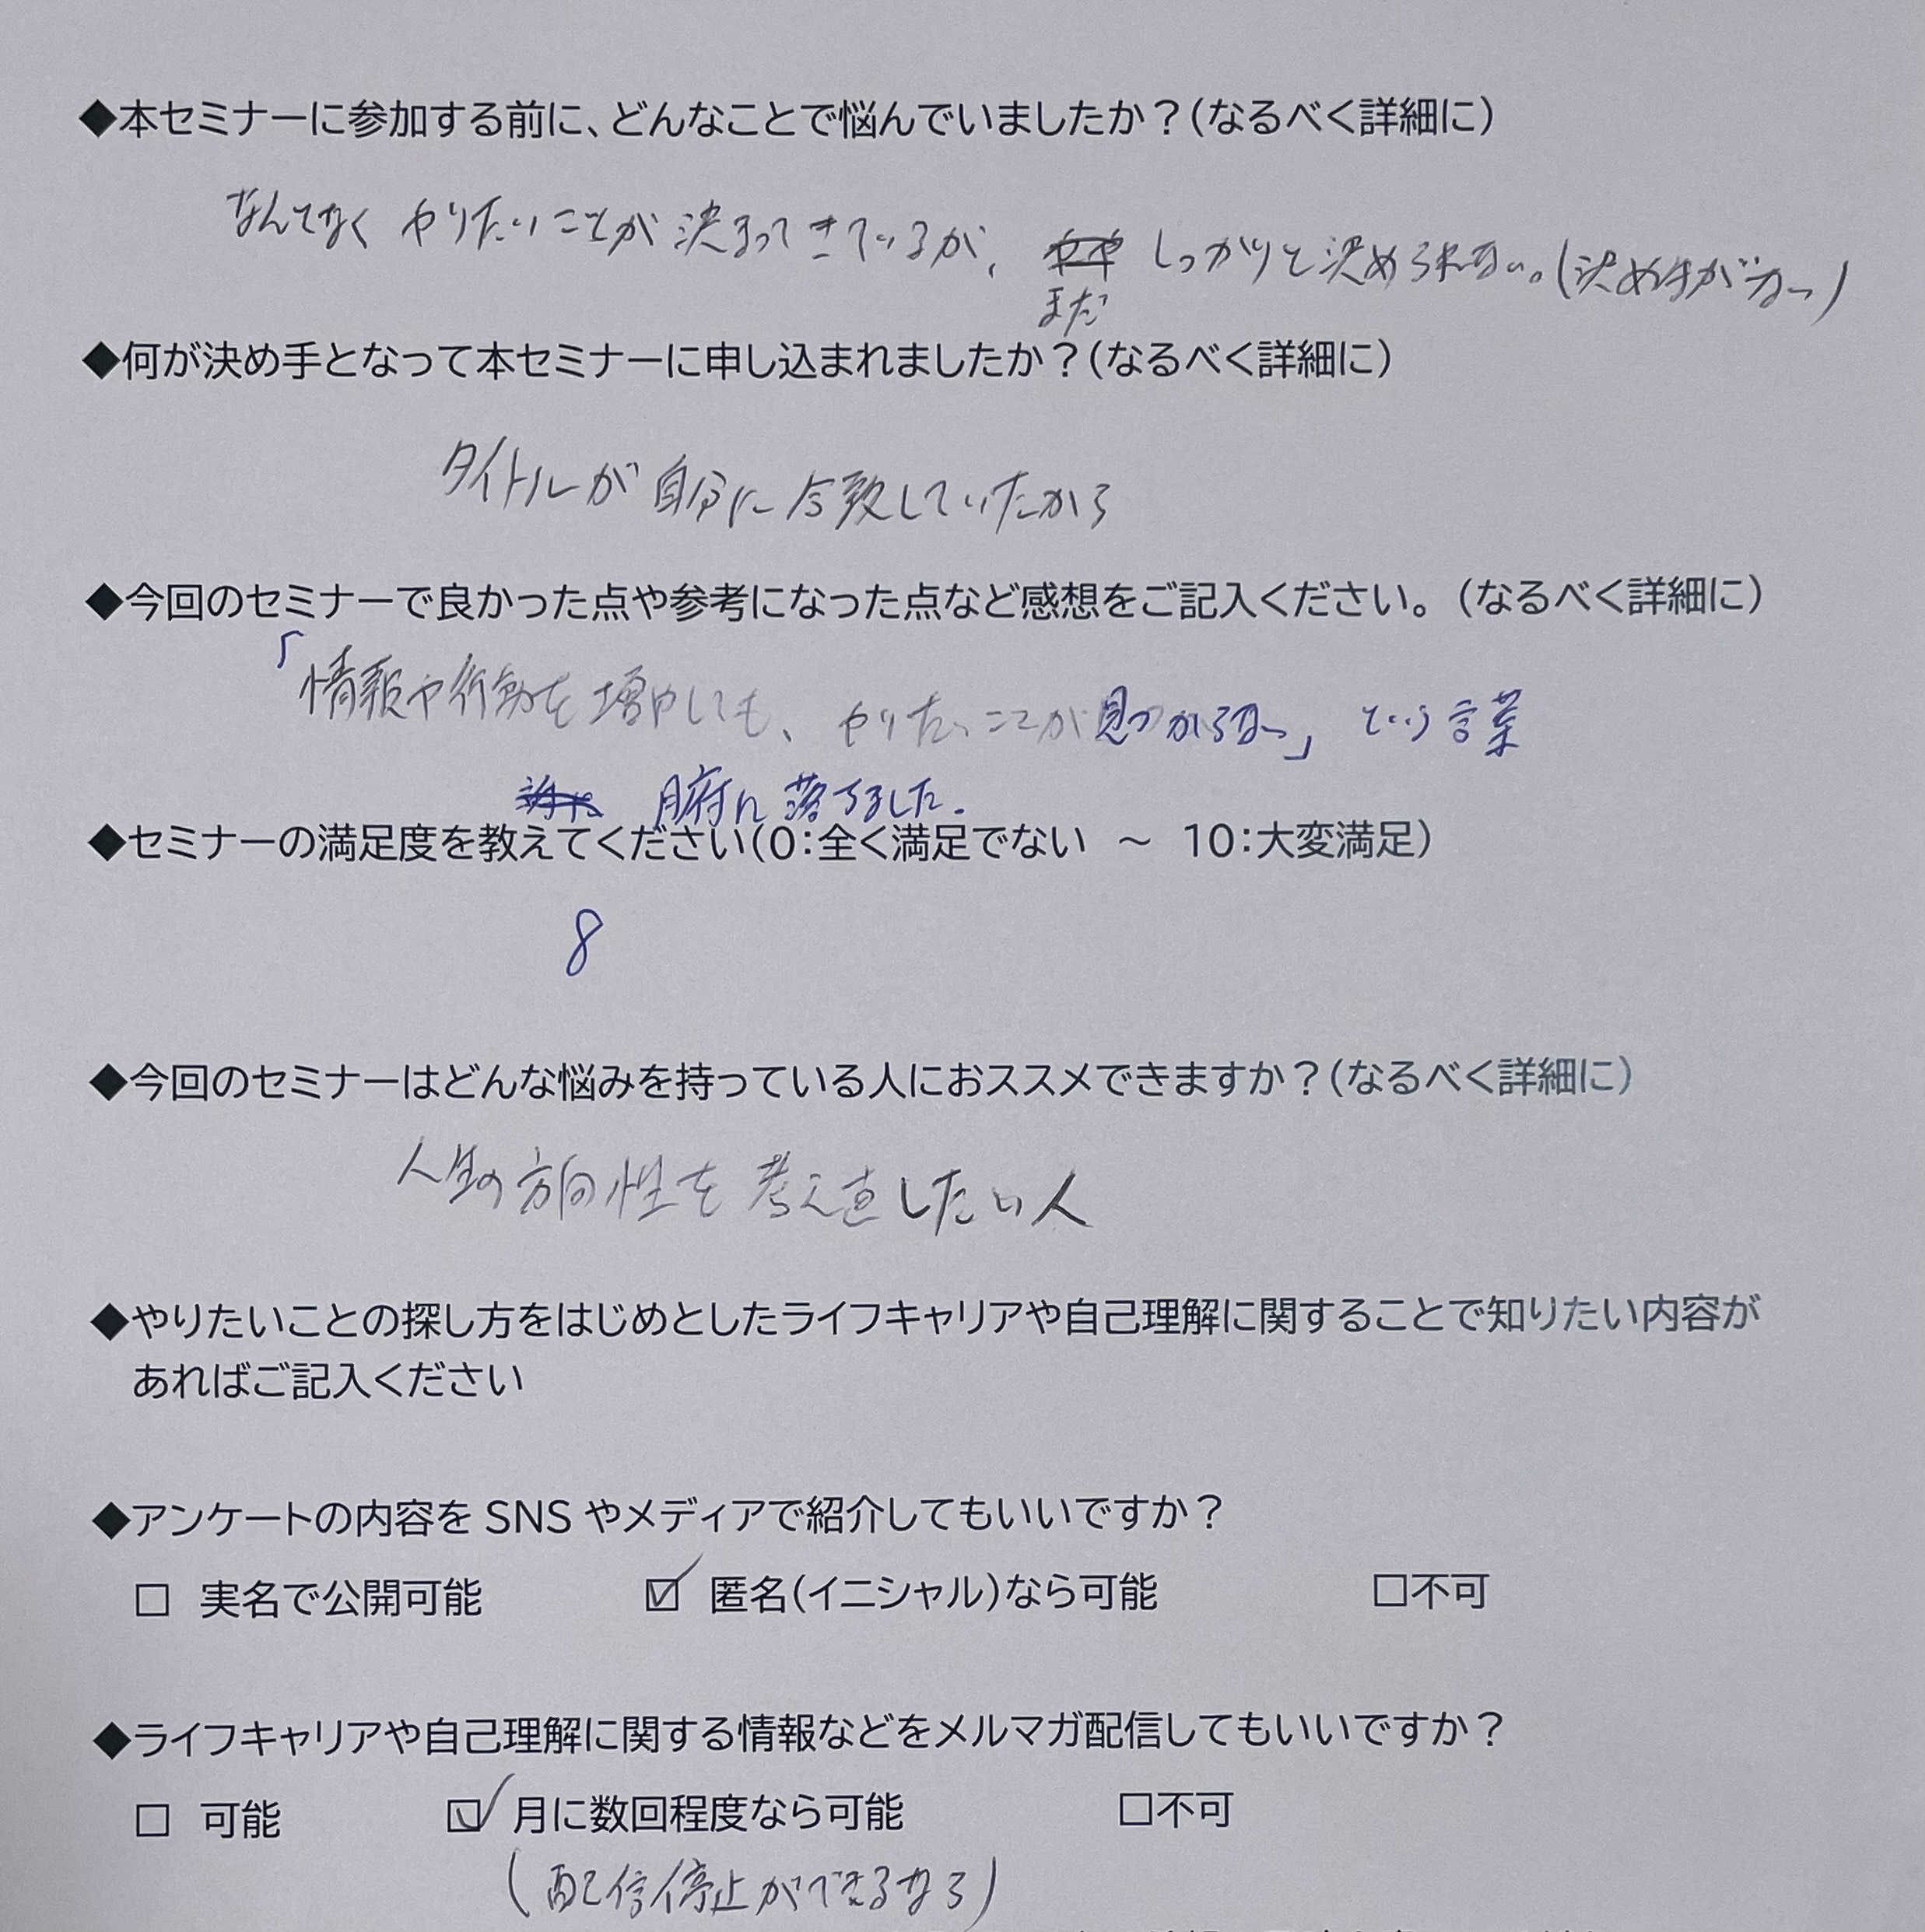 ◆本セミナーに参加する前に、どんなことで悩んでいましたか？(なるべく詳細に)
なんとなく やりたいことが 決まってきているが、 しっかりと決められない。(決め手がない)
まだ
◆何が決め手となって本セミナーに申し込まれましたか？(なるべく詳細に)
タイトルが 自分に 合致していたから
◆今回のセミナーで良かった点や参考になった点など感想をご記入ください。(なるべく詳細に)
「情報や行動を 増やしても、 やりたいことが見つからない」 という 言葉
腑に 落ちました.
◆セミナーの満足度を教えてください(0：全く満足でない ～ 10：大変満足)
8
◆今回のセミナーはどんな悩みを持っている人におススメできますか？(なるべく詳細に)
人生の方向性を 考え直したい人
◆やりたいことの探し方をはじめとしたライフキャリアや自己理解に関することで知りたい内容が
あればご記入ください
◆アンケートの内容を SNS やメディアで紹介してもいいですか？
☐ 実名で公開可能 ☑ 匿名(イニシャル)なら可能 ☐不可
◆ライフキャリアや自己理解に関する情報などをメルマガ配信してもいいですか？
☐ 可能 ☑ 月に数回程度なら可能 ☐不可
(配信停止ができるなら)